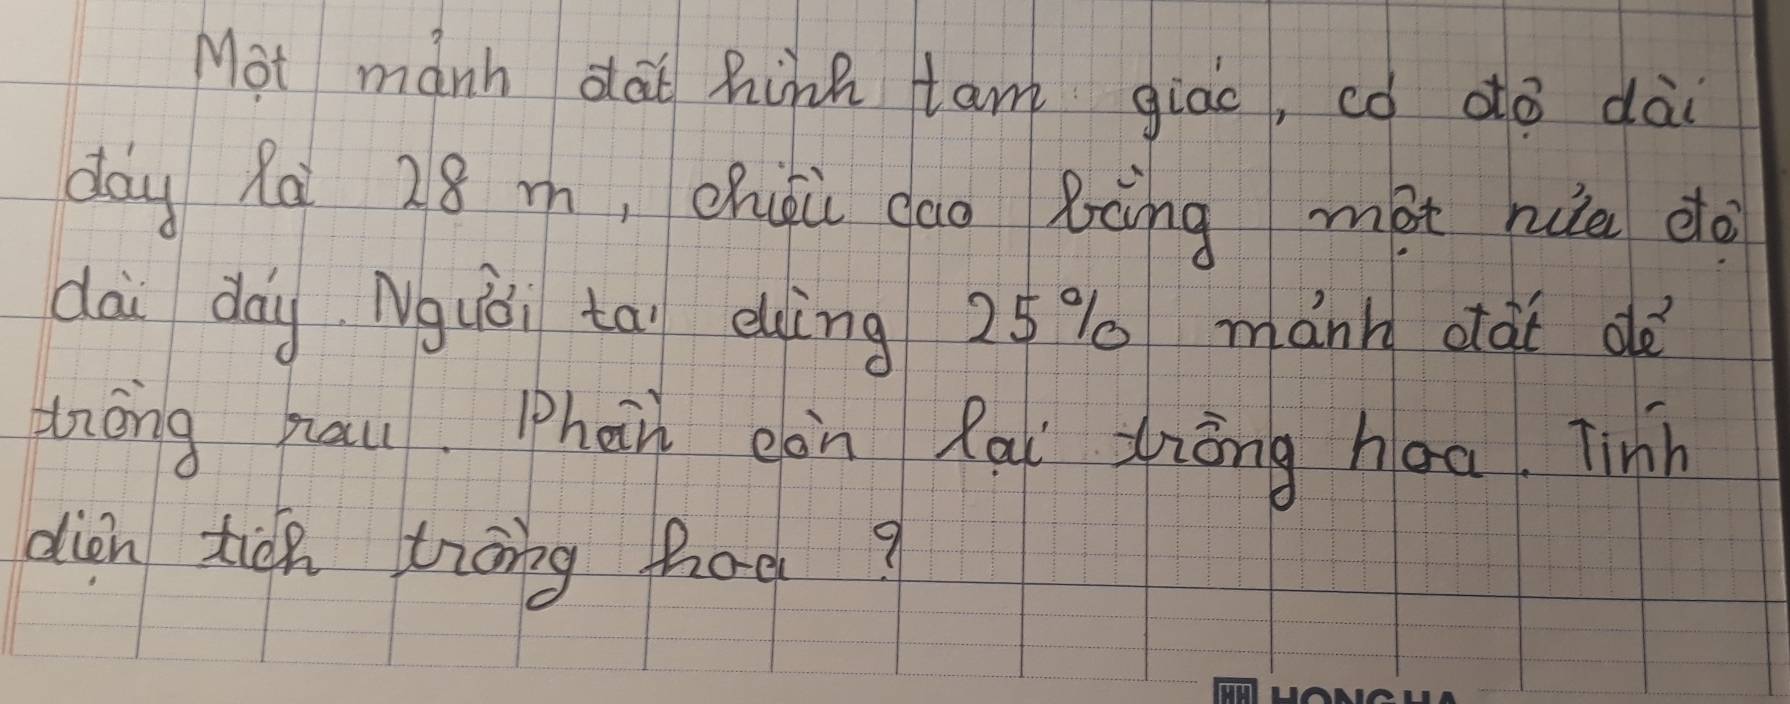 Một mảnh đất hình tam giác, có độ dài
đáy là 28 m, chiều cao bằng một nửa độ
dài đáy. Người ta dùng 25% mảnh đất để
trồng rau. Phần còn lại trồng hoa. Tính
diện tích trồng hoa ?
HH HONG HA